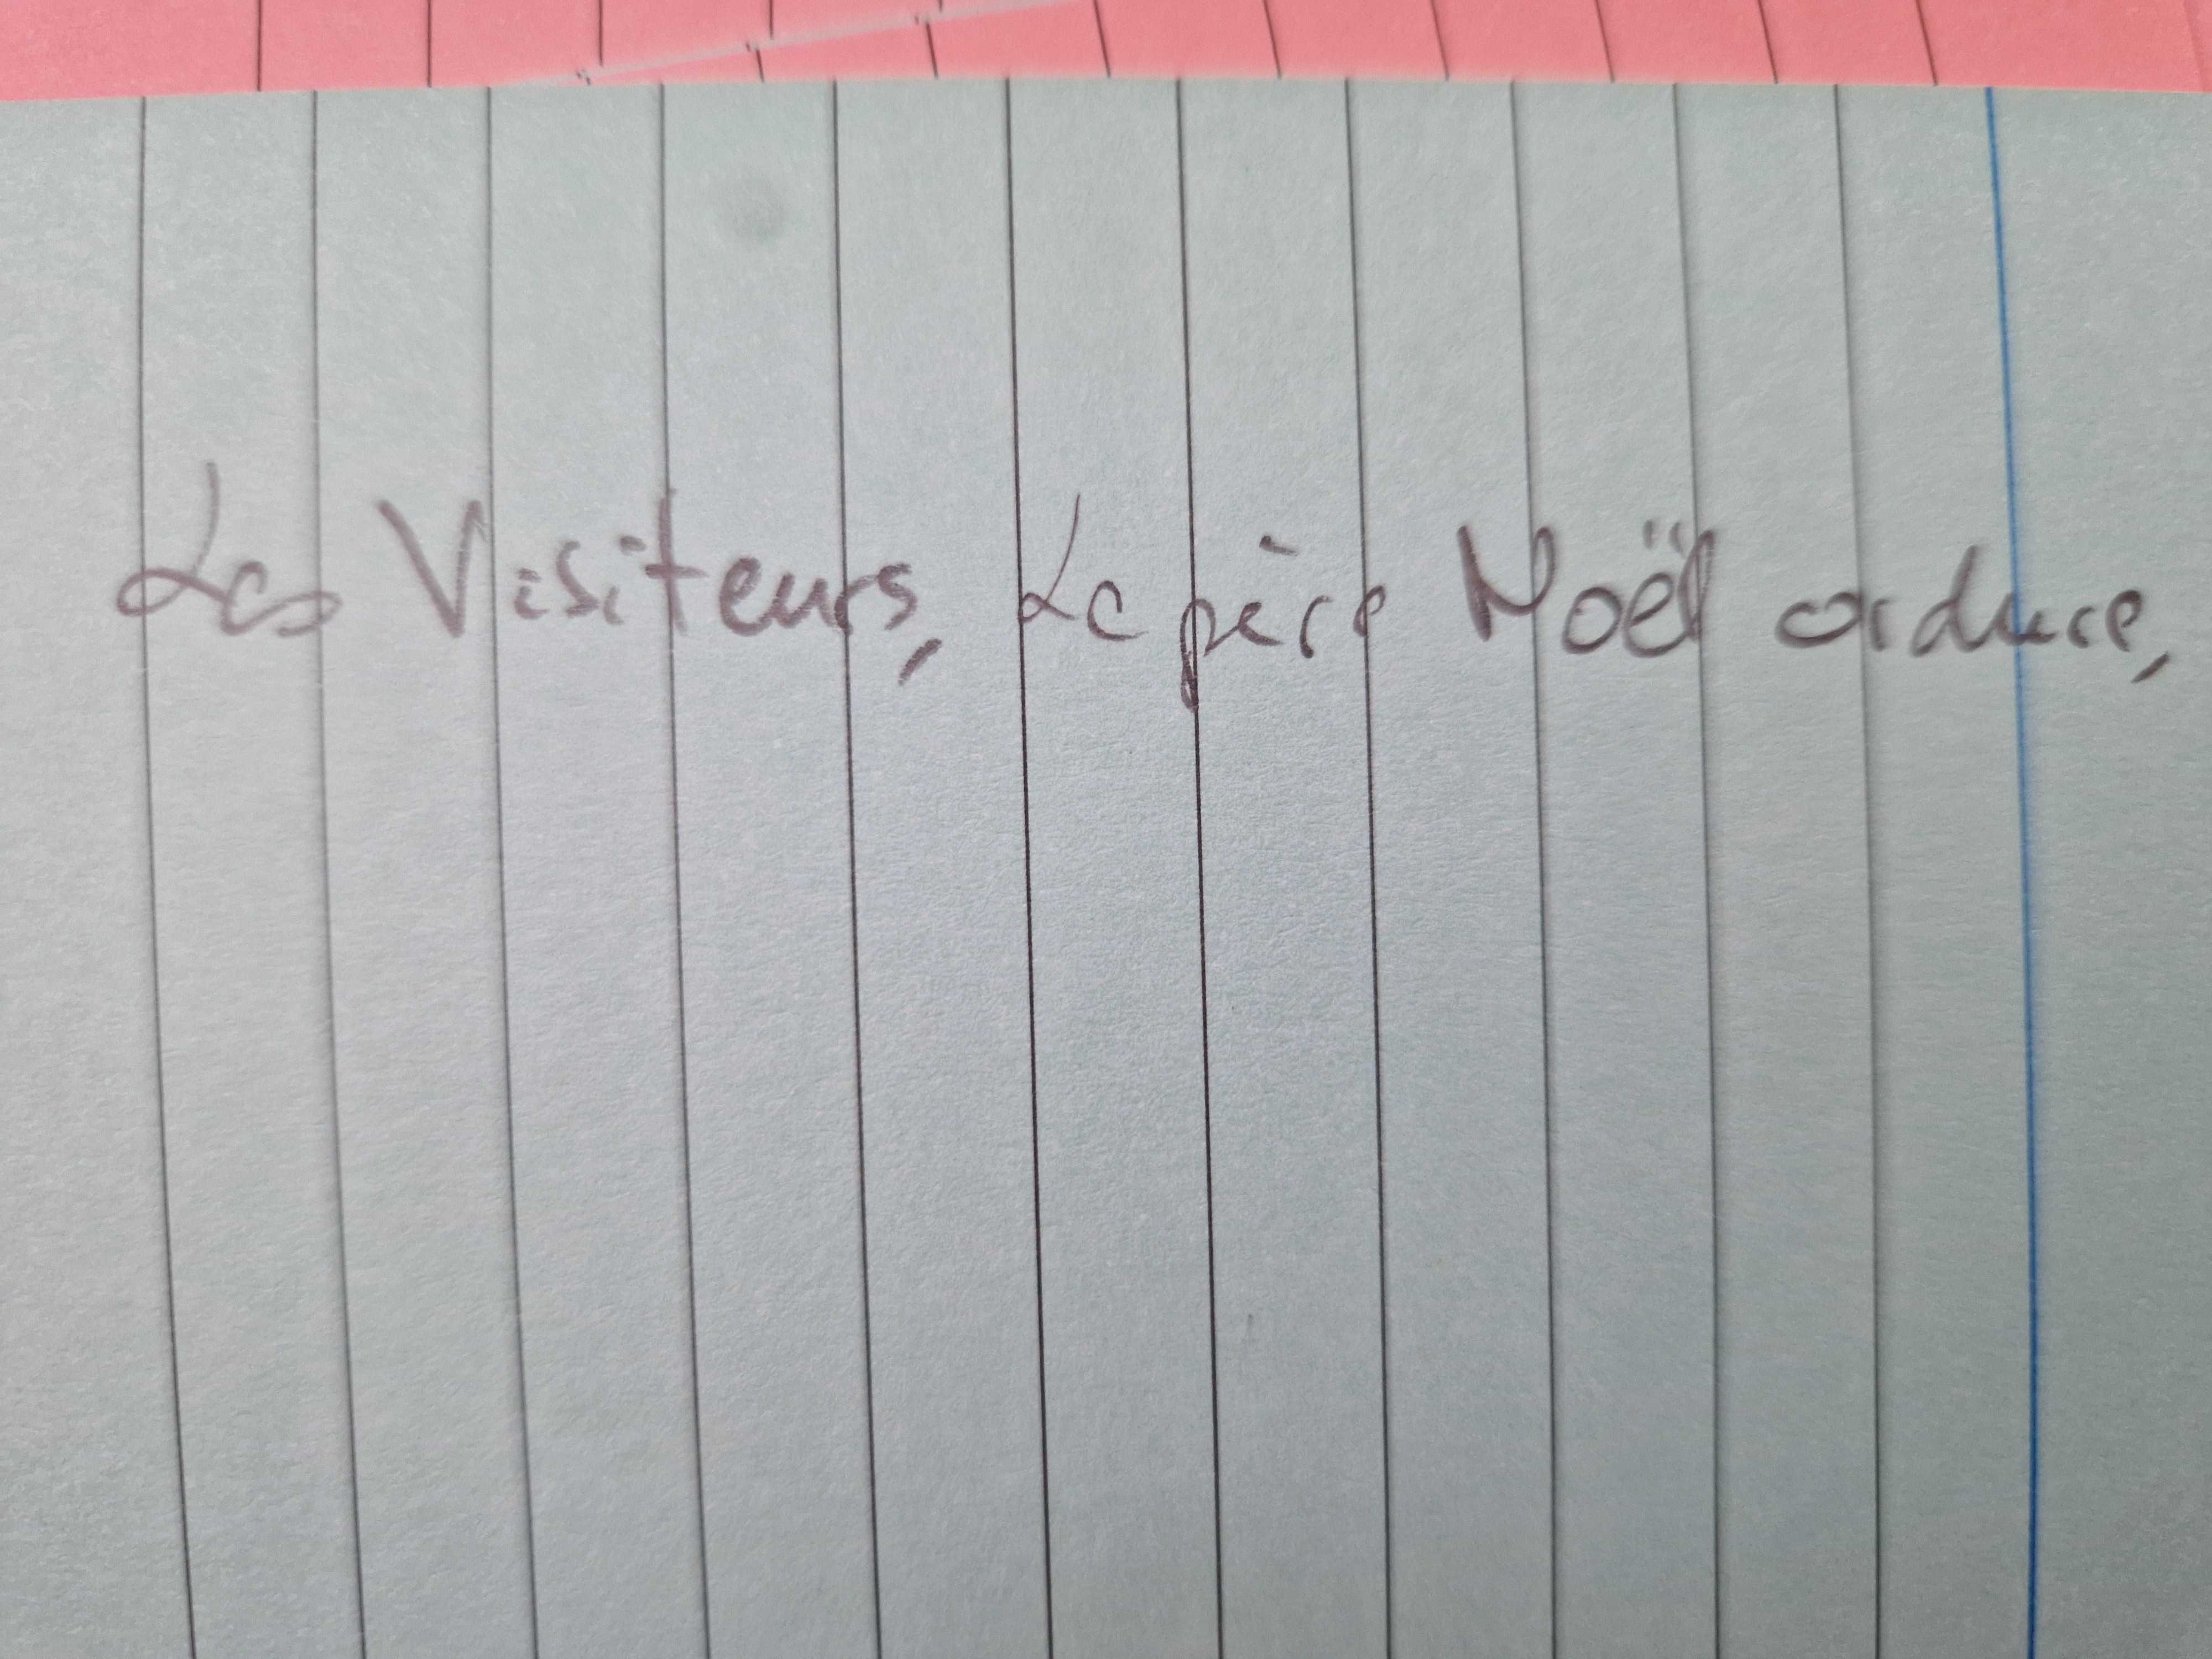 Les Visiteurs, Le père Noël ordure,